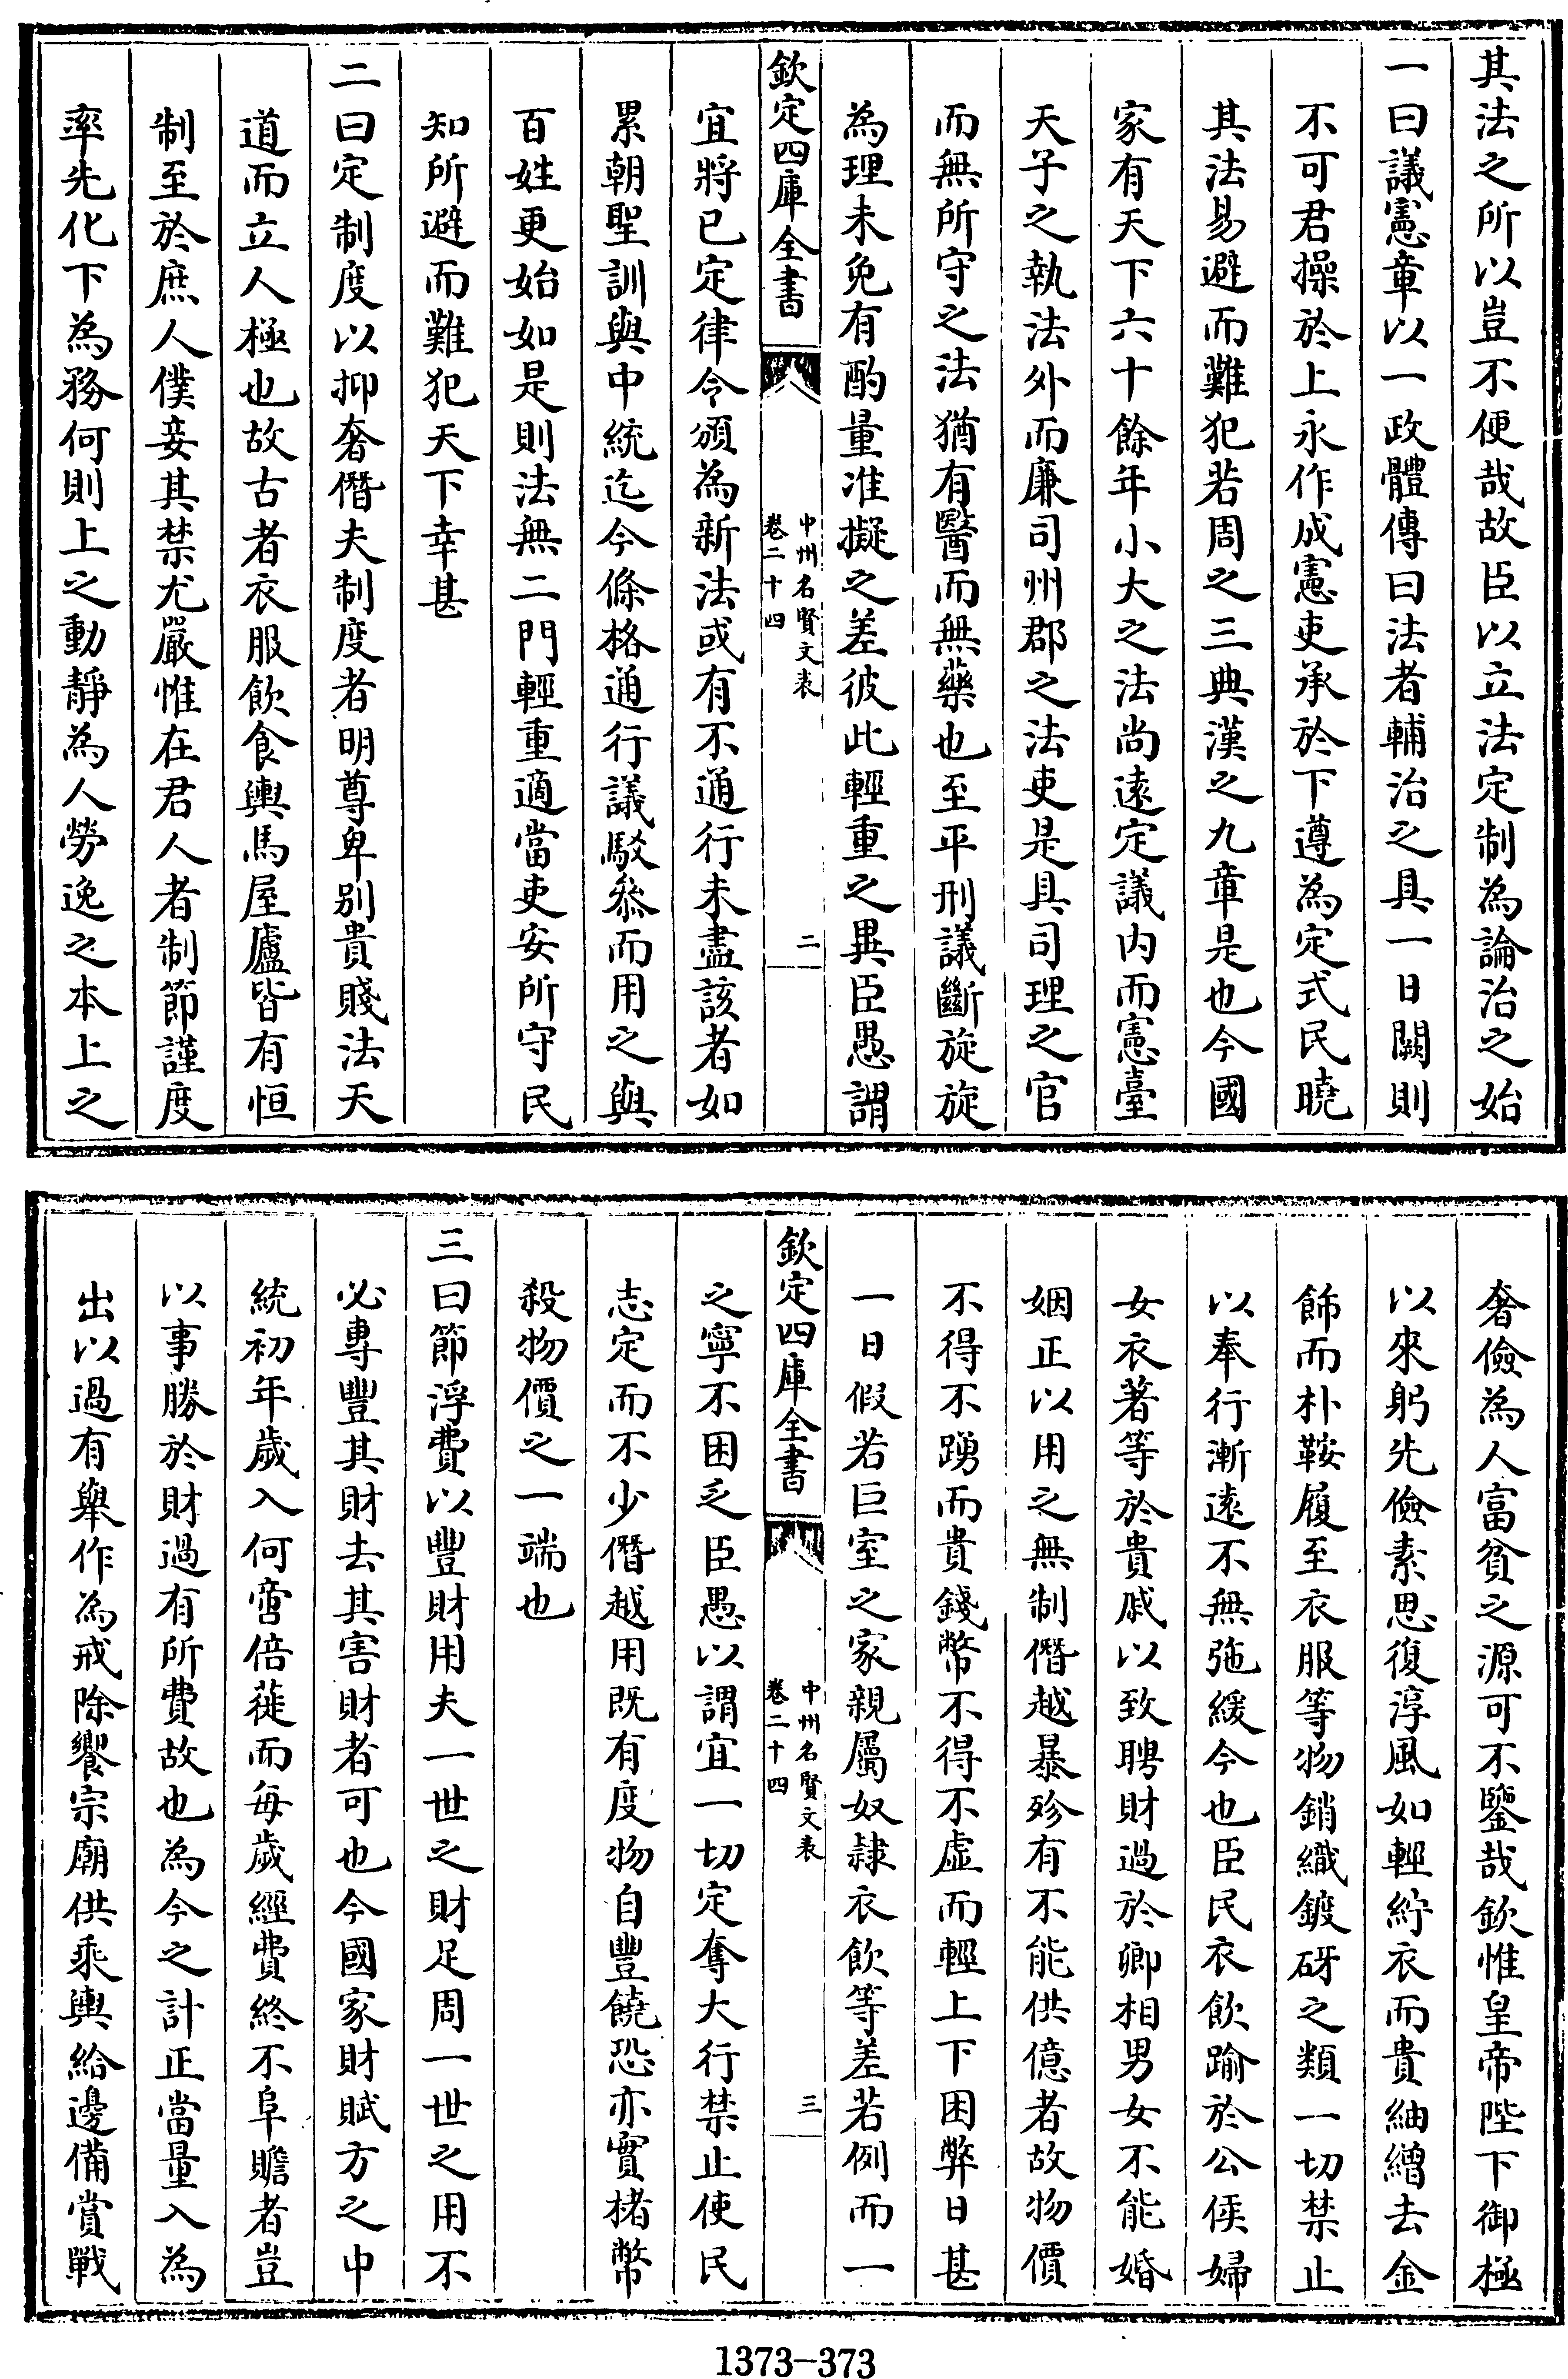 其法之所以豈不便哉故臣以立法定制為論治之始
一曰議憲章以一政體傳曰法者輔治之具一日闕則
不可君操於上永作成憲吏承於下遵為定式民曉
其法易避而難犯若周之三典漢之九章是也今國
家有天下六十餘年小大之法尚遠定議内而憲臺
天子之執法外而廉司州郡之法吏是具司理之官
而無所守之法猶有醫而無藥也至平刑議斷旋旋
為理未免有酌量准擬之差彼此輕重之異臣愚謂
欽定四庫全書
中州名賢文表
卷二十四
二
宜將已定律令頒為新法或有不通行未盡該者如
累朝聖訓與中統迄今條格通行議駁叅而用之與
百姓更始如是則法無二門輕重適當吏安所守民
知所避而難犯天下幸甚
二曰定制度以抑奢僭夫制度者明尊卑别貴賤法天
道而立人極也故古者衣服飲食輿馬屋廬皆有恒
制至於庶人僕妾其禁尤嚴惟在君人者制節謹度
率先化下為務何則上之動靜為人勞逸之本上之
奢儉為人富貧之源可不鑒哉欽惟皇帝陛下御極
以來躬先儉素思復淳風如輕紵衣而貴紬繒去金
飾而朴鞍履至衣服等物銷織鍍砑之類一切禁止
以奉行漸遠不無弛緩今也臣民衣飲踰於公侯婦
女衣著等於貴戚以致聘財過於卿相男女不能婚
姻正以用之無制僭越暴殄有不能供億者故物價
不得不踴而貴錢幣不得不虚而輕上下困弊日甚
一日假若巨室之家親屬奴隷衣飲等差若例而一
欽定四庫全書
中州名賢文表
卷二十四
三
之寧不困乏臣愚以謂宜一切定奪大行禁止使民
志定而不少僭越用既有度物自豐饒恐亦實楮幣
殺物價之一端也
三曰節浮費以豐財用夫一世之財足周一世之用不
必專豐其財去其害財者可也今國家財賦方之中
統初年歲入何啻倍蓰而每歲經費終不阜贍者豈
以事勝於財過有所費故也為今之計正當量入為
出以過有舉作為戒除饗宗廟供乘輿給邊備賞戰
1373-373